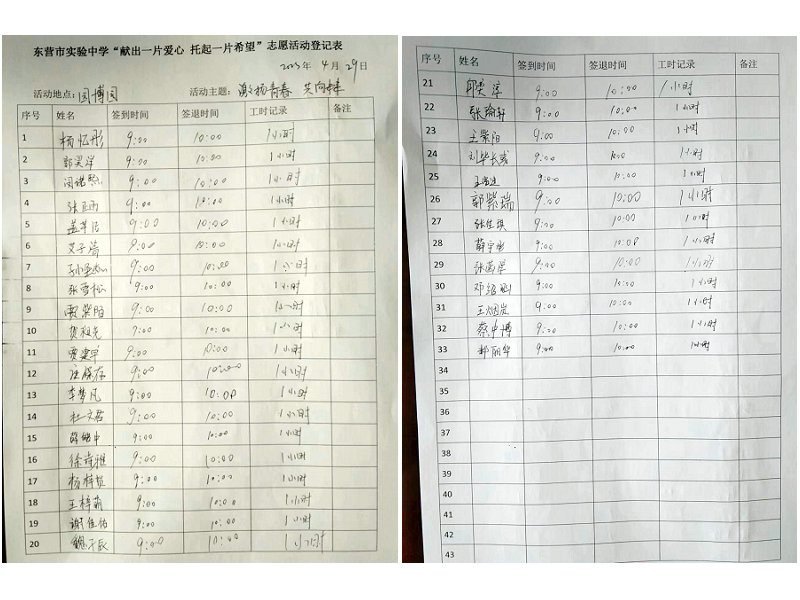 东营市实验中学“献出一片爱心 托起一片希望”志愿活动登记表
2023 年 4 月 29 日
活动地点：园博园 活动主题：激扬青春 共向未来
序号 姓名 签到时间 签退时间 工时记录 备注
1 杨忆彤 9:00 10:00 1小时
2 郭昊洋 9:00 10:00 1小时
3 9:00 10:00 1小时
4 9:00 10:00 1小时
5 9:00 10:00 1小时
6 艾子涵 9:00 10:00 1小时
7 9:00 10:00 1小时
8 张雪松 9:00 10:00 1小时
9 贾紫阳 9:00 10:00 1小时
10 9:00 10:00 1小时
11 9:00 10:00 1小时
12 9:00 10:00 1小时
13 李梦凡 9:00 10:00 1小时
14 杜文君 9:00 10:00 1小时
15 9:00 10:00 1小时
16 徐诗雅 9:00 10:00 1小时
17 9:00 10:00 1小时
18 王梓萌 9:00 10:00 1小时
19 谢佳怡 9:00 10:00 1小时
20 魏子辰 9:00 10:00 1小时
序号 姓名 签到时间 签退时间 工时记录 备注
21 9:00 10:00 1小时
22 张瑜轩 9:00 10:00 1小时
23 王紫阳 9:00 10:00 1小时
24 9:00 10:00 1小时
25 9:00 10:00 1小时
26 郭紫瑞 9:00 10:00 1小时
27 张佳琪 9:00 10:00 1小时
28 9:00 10:00 1小时
29 9:00 10:00 1小时
30 9:00 10:00 1小时
31 9:00 10:00 1小时
32 蔡中博 9:00 10:00 1小时
33 郝丽华 9:00 10:00 1小时
34
35
36
37
38
39
40
41
42
43